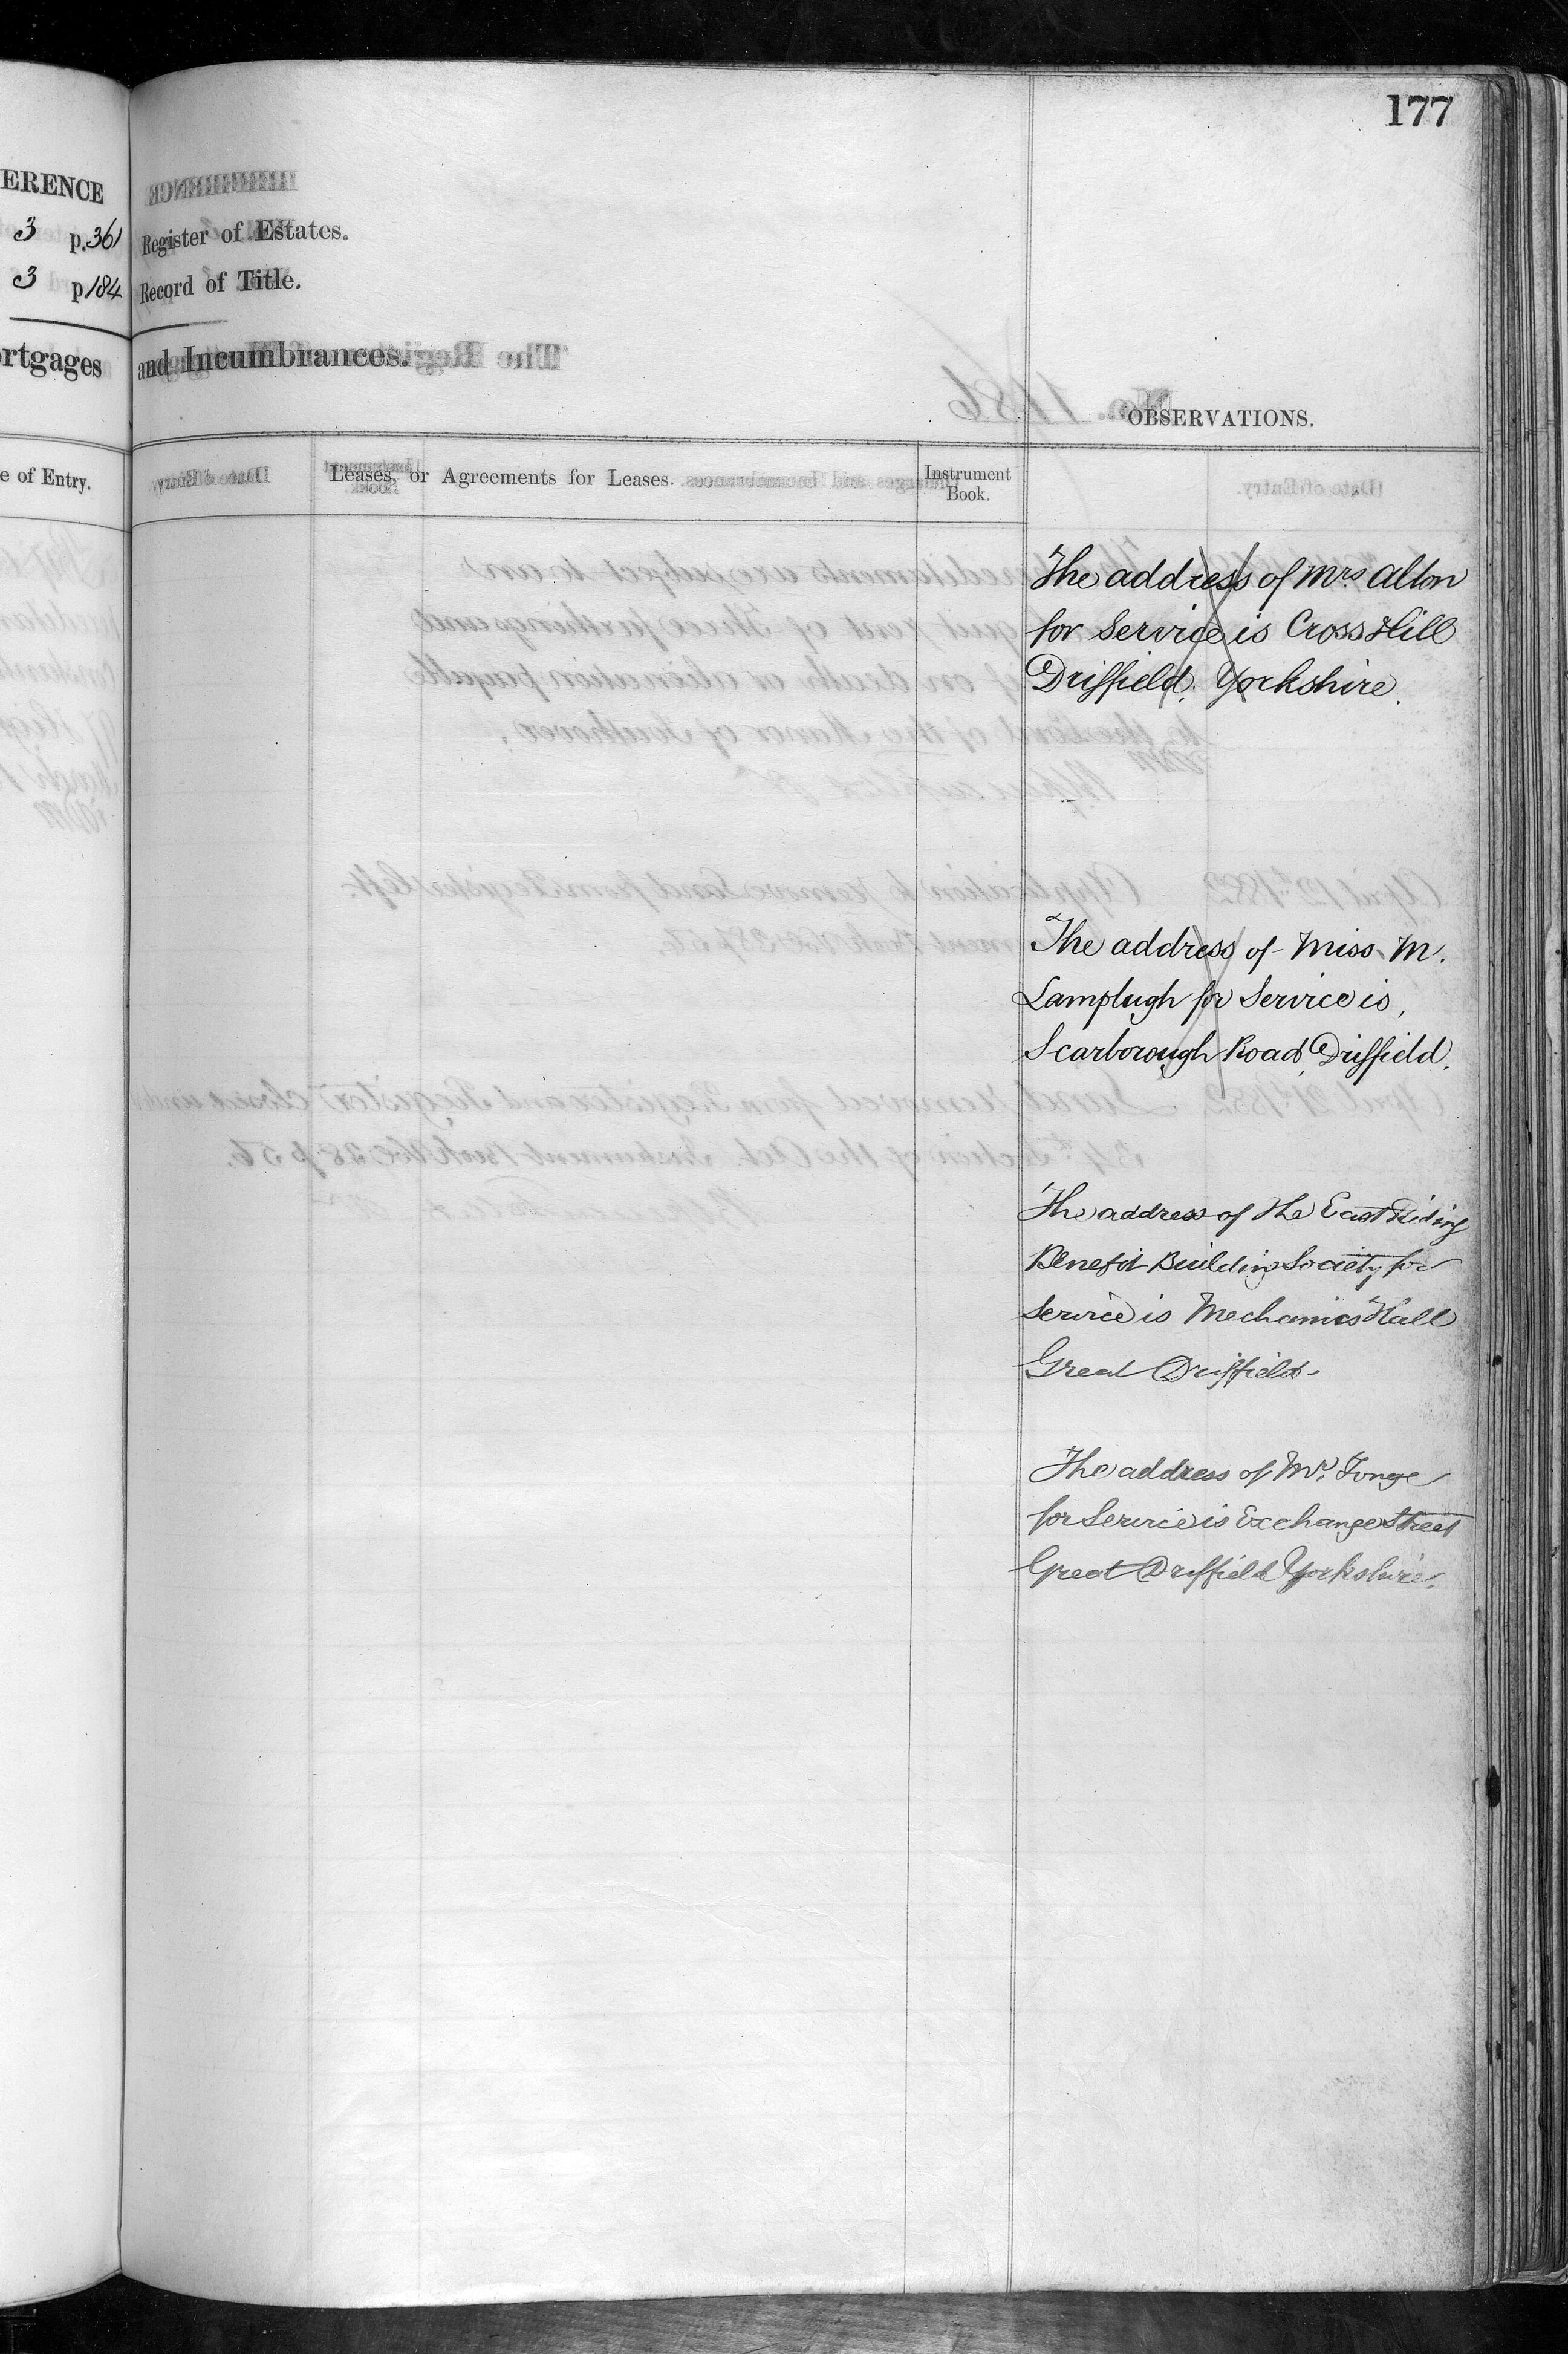 177
ERENCE
3 p.361 Register of Estates.
3 p184 Record of Title.
ortgages and Incumbrances.
OBSERVATIONS.
e of Entry.
Leases, or Agreements for Leases.
Instrument
Book.
The address of Mrs Alton
for Service is Cross Hill
Driffield. Yorkshire.
The address of Miss M.
Lamplugh for Service is,
Scarborough Road, Driffield.
The address of the East Riding
Benefit Building Society for
Service is Mechanics Hall
Great Driffield.
The address of Mr. Tonge
for Service is Exchange Street
Great Driffield Yorkshire.